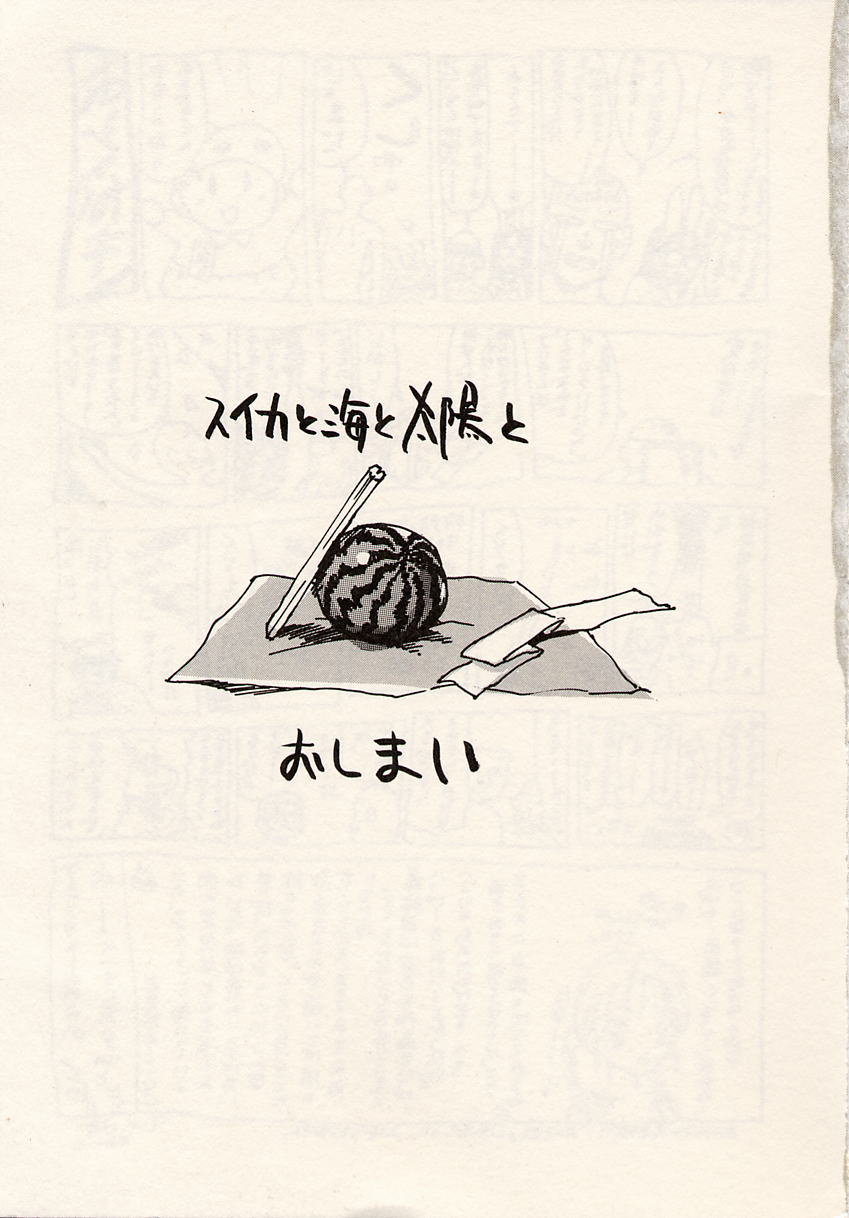 スイカと海と太陽と
おしまい